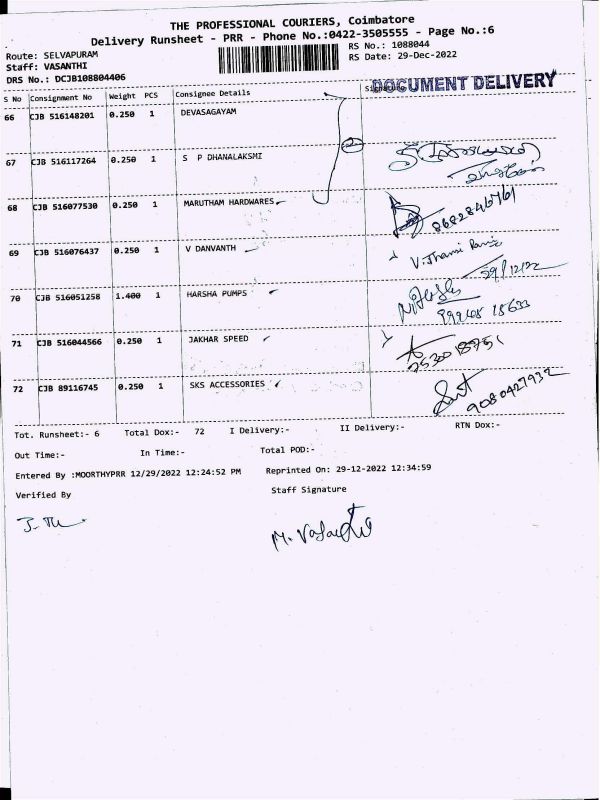 THE PROFESSIONAL COURIERS, Coimbatore
Delivery Runsheet - PRR - Phone No.:0422-3505555 - Page No.:6
Route: SELVAPURAM
RS No.: 1088044
Staff: VASANTHI
RS Date: 29-Dec-2022
DRS No.: DCJB108804406
DOCUMENT DELIVERY
S No Consignment No Weight PCS Consignee Details Signature
66 CJB 516148201 0.250 1 DEVASAGAYAM
67 CJB 516117264 0.250 1 S P DHANALAKSMI
2
68 CJB 516077530 0.250 1 MARUTHAM HARDWARES
8682846761
69 CJB 516076437 0.250 1 V DANVANTH
29/12/22
70 CJB 516051258 1.400 1 HARSHA PUMPS
71 CJB 516044566 0.250 1 JAKHAR SPEED
72 CJB 89116745 0.250 1 SKS ACCESSORIES
9080427932
Tot. Runsheet:- 6 Total Dox:- 72 I Delivery:- II Delivery:- RTN Dox:-
Out Time:- In Time:- Total POD:-
Entered By :MOORTHYPRR 12/29/2022 12:24:52 PM Reprinted On: 29-12-2022 12:34:59
Verified By Staff Signature